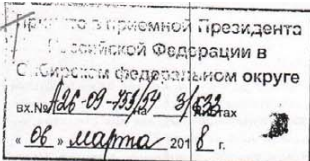 Принято в приемной Президента
Российской Федерации в
Сибирском федеральном округе
вх.№ А26-09- на листах
« 06 » марта 2018 г.